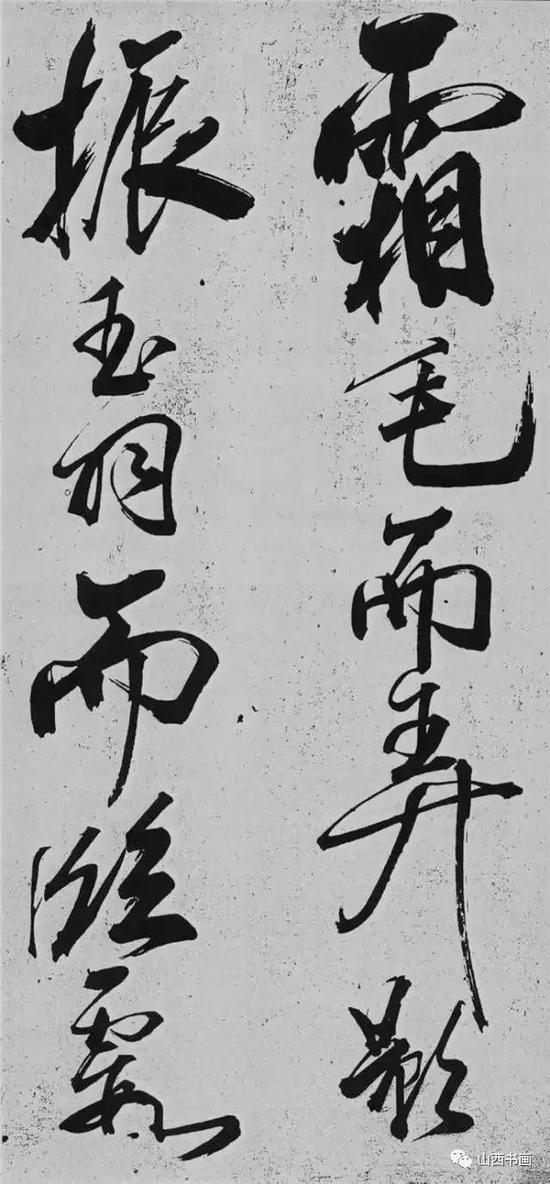 霜毛而弄影
振玉羽而臨霞
山西书画